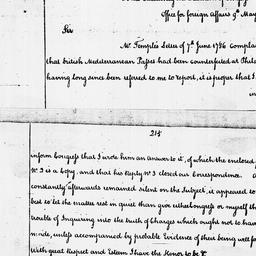 Office for foreign Affairs 9th May
Sir
Mr. Temple's Letter of 7th June 1786 Compla
that british Mediterranean Passes had been counterfeited at Phila
having long since been refered to me to report, it is proper that I
in
215
inform Congress that I wrote him an Answer to it, of which the enclosed
No 3 is a Copy, and that his Reply No 3 closed our Correspondence.
constantly afterwards remained silent on the Subject, it appeared to
best to let the matter rest in quiet than give either Congress or myself th
trouble of Inquiring into the truth of Charges which ought not to hav
made, unless accompanied by probable Evidence of their being well fo
With great Respect and Esteem I have the Honor to be &